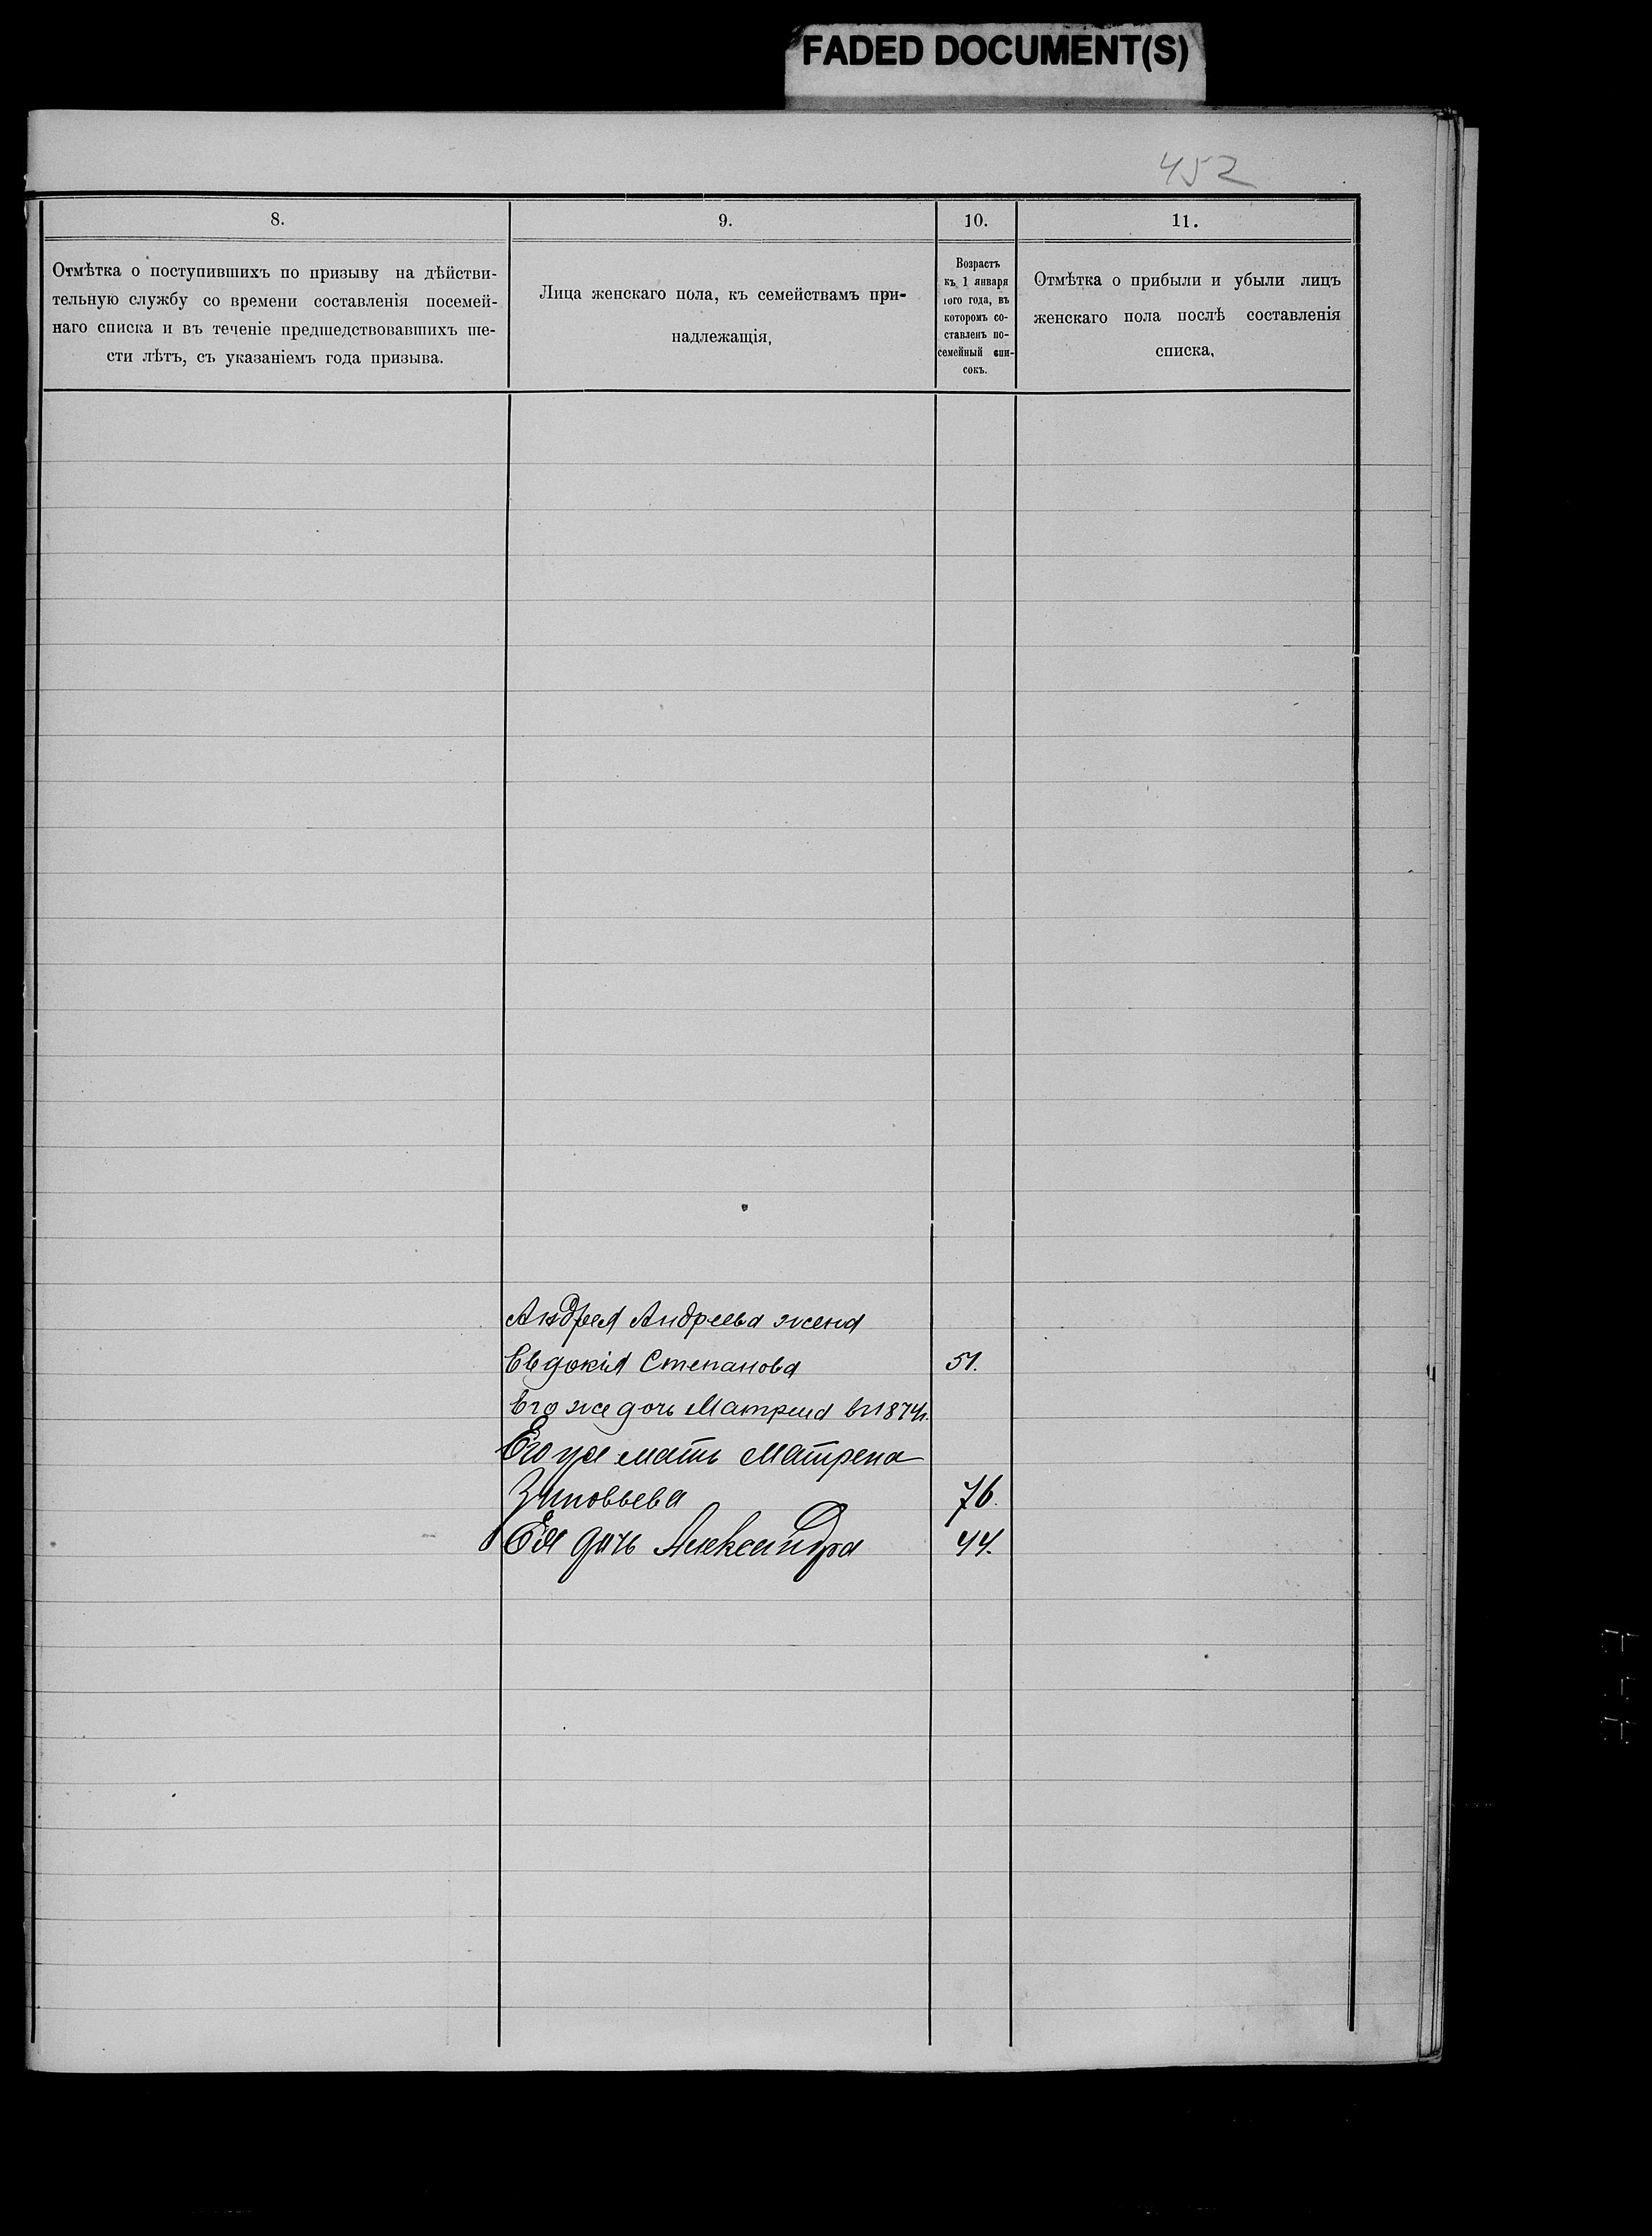 FADED DOCUMENT(S)
452
8.
9.
10.
11.
Отмѣтка о поступившихъ по призыву на дѣйстви-
тельную службу со времени составленія посемей-
наго списка и въ теченіе предшедствовавшихъ ше-
сти лѣтъ, съ указаніемъ года призыва.
Лица женскаго пола, къ семействамъ при-
надлежащія,
Возрастъ
къ 1 января
того года, въ
которомъ со-
ставленъ по-
семейный спи-
сокъ.
Отмѣтка о прибыли и убыли лицъ
женскаго пола послѣ составленія
списка,
Андрея Андреева жена
Евдокія Степанова 51.
Его же дочь Матрена
Его же мать Матрена
Зиновьева 76.
Ея дочь Александра 44.